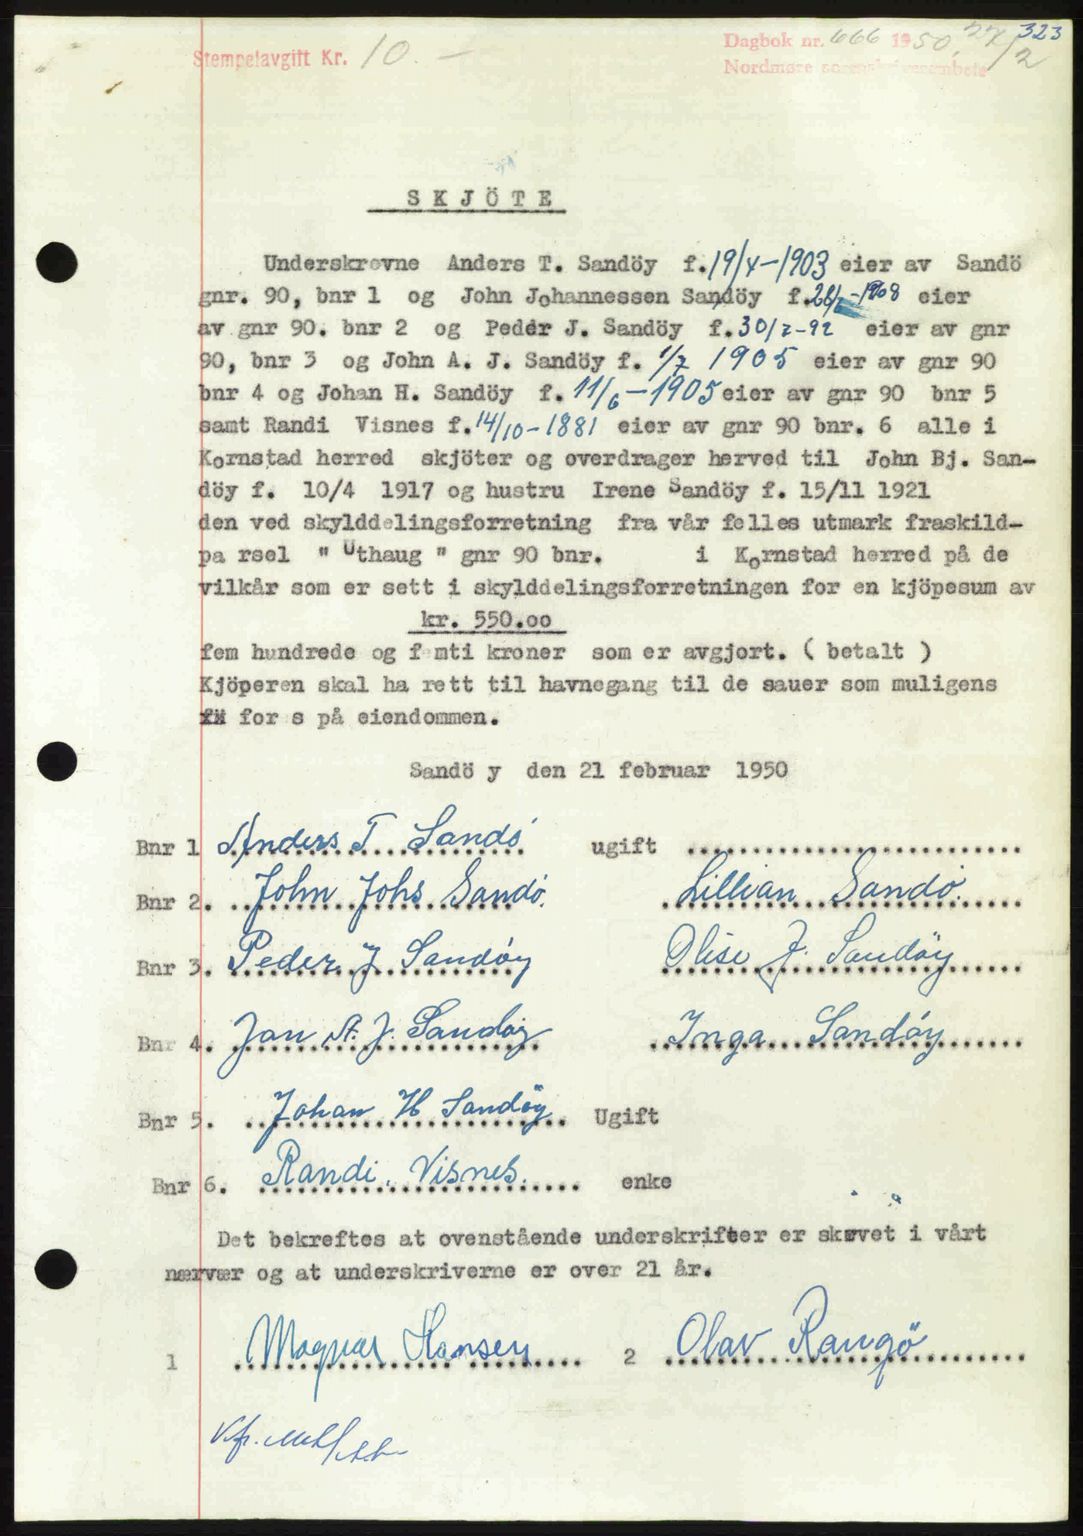 323
Stempelavgift Kr. 10.—
Dagbok nr. 666 1950, 27/2
Nordmøre sorenskriverembete
SKJÖTE
Underskrevne Anders T. Sandöy f. 19/4-1903 eier av Sandö
gnr. 90, bnr 1 og John Johannessen Sandöy f. -1908 eier
av gnr 90. bnr 2 og Peder J. Sandöy f. 30/7-92 eier av gnr
90, bnr 3 og John A. J. Sandöy f. 1/7 1905 eier av gnr 90
bnr 4 og Johan H. Sandöy f. 11/6-1905 eier av gnr 90 bnr 5
samt Randi Visnes f. 14/10-1881 eier av gnr 90 bnr. 6 alle i
Kornstad herred skjöter og overdrager herved til John Bj. San-
döy f. 10/4 1917 og hustru Irene Sandöy f. 15/11 1921
den ved skylddelingsforretning fra vår felles utmark fraskild-
pa rsel " Uthaug " gnr 90 bnr. i Kornstad herred på de
vilkår som er sett i skylddelingsforretningen for en kjöpesum av
kr. 550.oo
fem hundrede og femti kroner som er avgjort. ( betalt )
Kjöperen skal ha rett til havnegang til de sauer som muligens
for s på eiendommen.
Sandö y den 21 februar 1950
Bnr 1 Anders T Sandö ugift
Bnr 2. John Johs Sandö. Lillian Sandö.
Bnr 3. Peder J Sandöy Olise J. Sandöy
Bnr 4. Jon A. J. Sandöy Inga Sandöy
Bnr 5. Johan H Sandöy Ugift
Bnr 6. Randi Visnes. enke
Det bekreftes at ovenstående underskrifter er skrevet i vårt
nærvær og at underskriverne er over 21 år.
1 Magnar Hansen 2 Olav Rangö